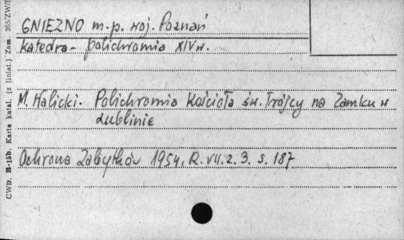 GNIEZNO m.p. woj. Poznań
Katedra - polichromia XIV w.
M. Halicki. Polichromia Kościoła św. Trójcy na Zamku w
Lublinie
Ochrona Zabytków 1954, R. VII. z. 3. s. 187
CWD. B-15b. Karta katal. (z liniat.) Zam.